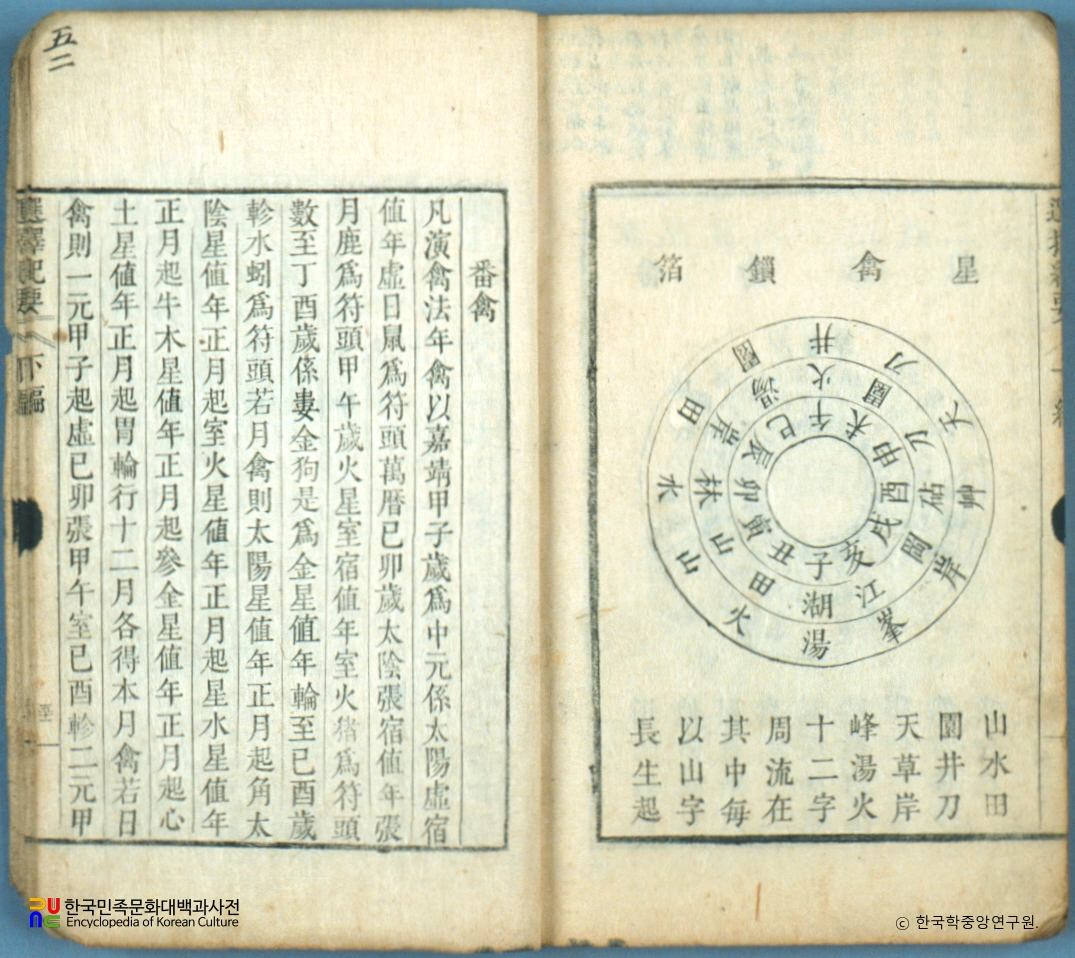 星禽鎖箔
井刀天艸岸峯湯火山水田園
火園刀砧岡江湖田山林岸湯
午未申酉戌亥子丑寅卯辰巳
山水田
園井刀
天草岸
峰湯火
十二字
周流在
其中每
以山字
長生起
五二
番禽
凡演禽法年禽以嘉靖甲子歲爲中元係太陽虛宿
値年虛日鼠爲符頭萬曆已卯歲太陰張宿値年張
月鹿爲符頭甲午歲火星室宿値年室火猪爲符頭
數至丁酉歲係婁金狗是爲金星値年輪至已酉歲
軫水蚓爲符頭若月禽則太陽星値年正月起角太
陰星値年正月起室火星値年正月起星水星値年
正月起牛木星値年正月起參金星値年正月起心
土星値年正月起胃輪行十二月各得本月禽若日
禽則一元甲子起虛已卯張甲午室已酉軫二元甲
選擇紀要 下編
한국민족문화대백과사전
Encyclopedia of Korean Culture
ⓒ 한국학중앙연구원.